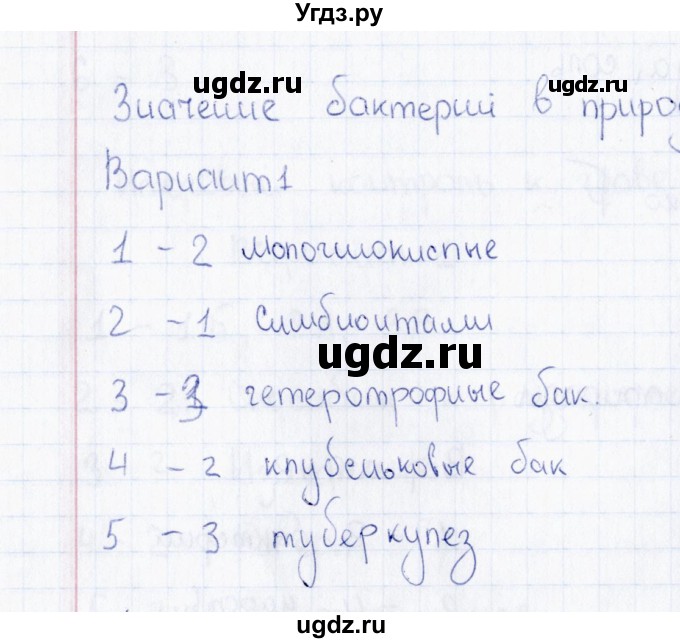 Угдз.ру
ugdz.ru ugdz.ru
Значение бактерий в природ
Вариант 1
1 – 2 Молочнокислые
2 – 1 Симбионтами
ugdz.ru
3 – гетеротрофные бак.
4 – 2 клубеньковые бак
5 – 3 туберкулез
ugdz.ru